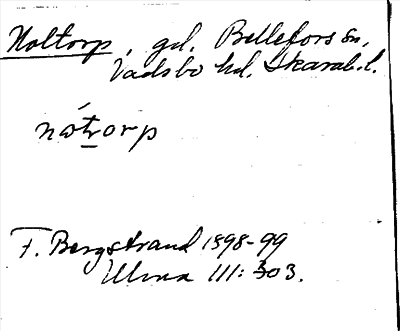 Noltorp, gd. Bellefors sn,
Vadsbo hd, Skarab. l.
nøtrorp
F. Bergstrand 1898-99
Ulma III: 303.